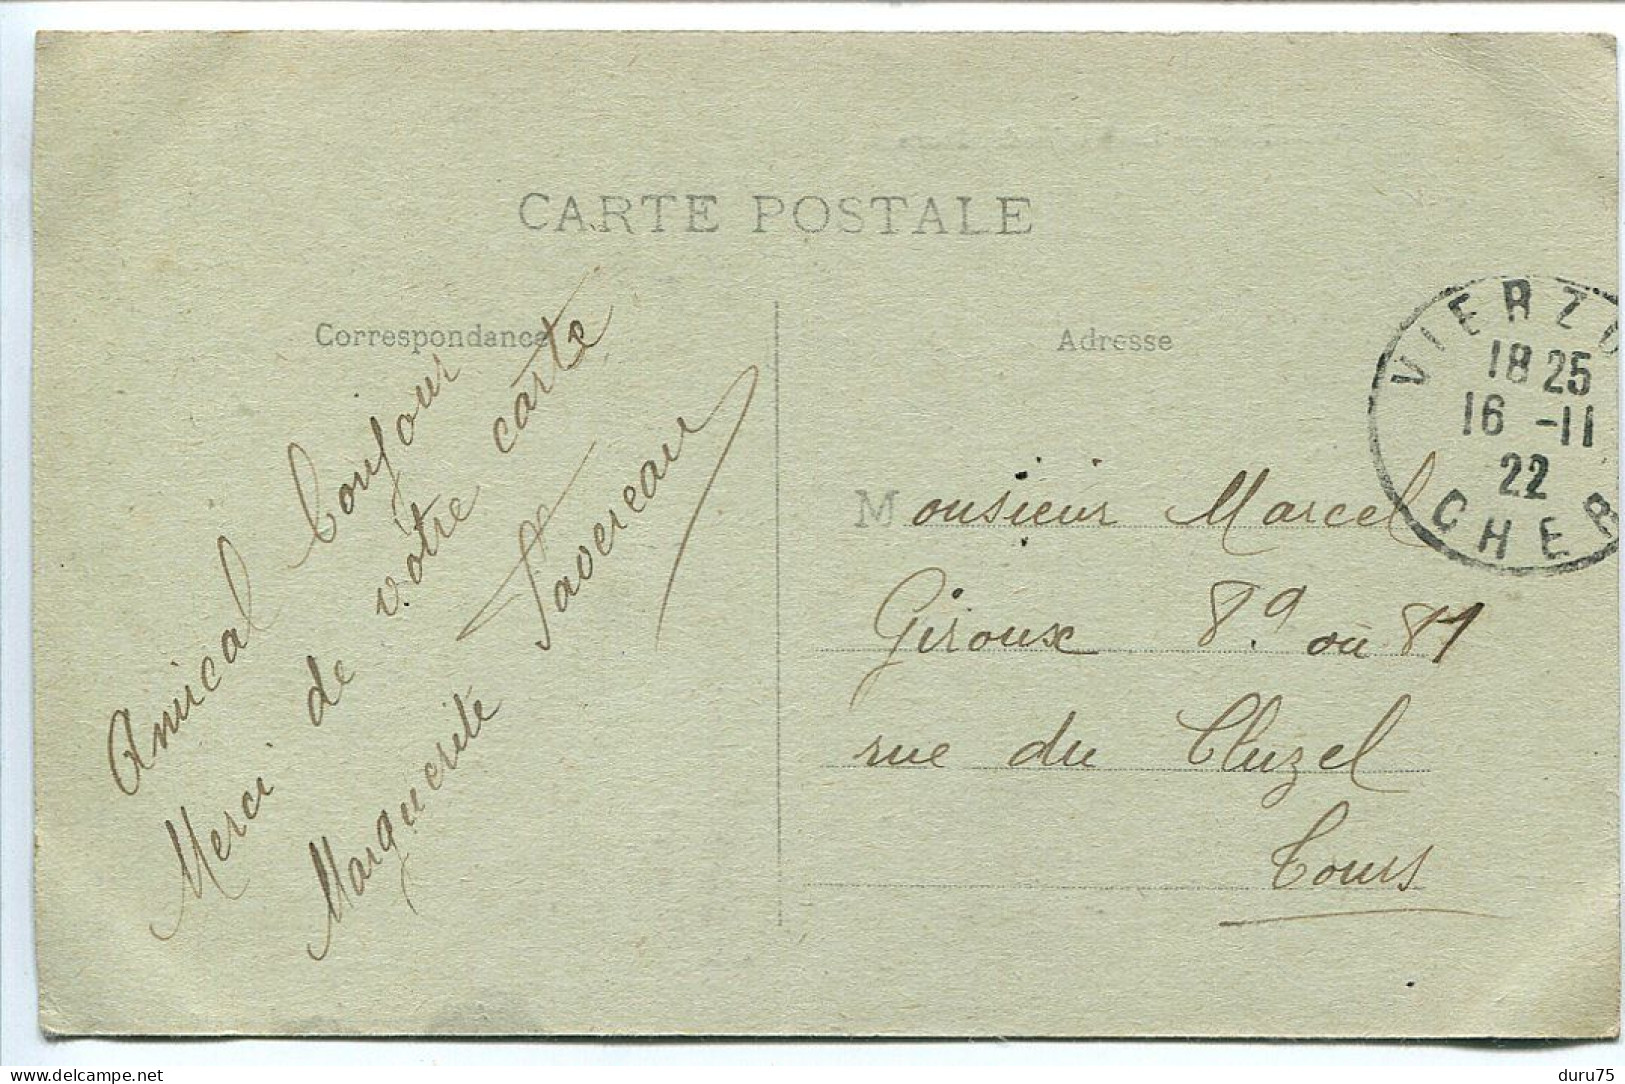 CARTE POSTALE
Correspondance
Adresse
Amical bonjour
Merci de votre carte
Marguerite Favereau
VIERZO
18 25
16 -11
22
CHER
Monsieur Marcel
Giroux 89 ou 81
rue du Cluzel
Tours
www.delcampe.net
duru75